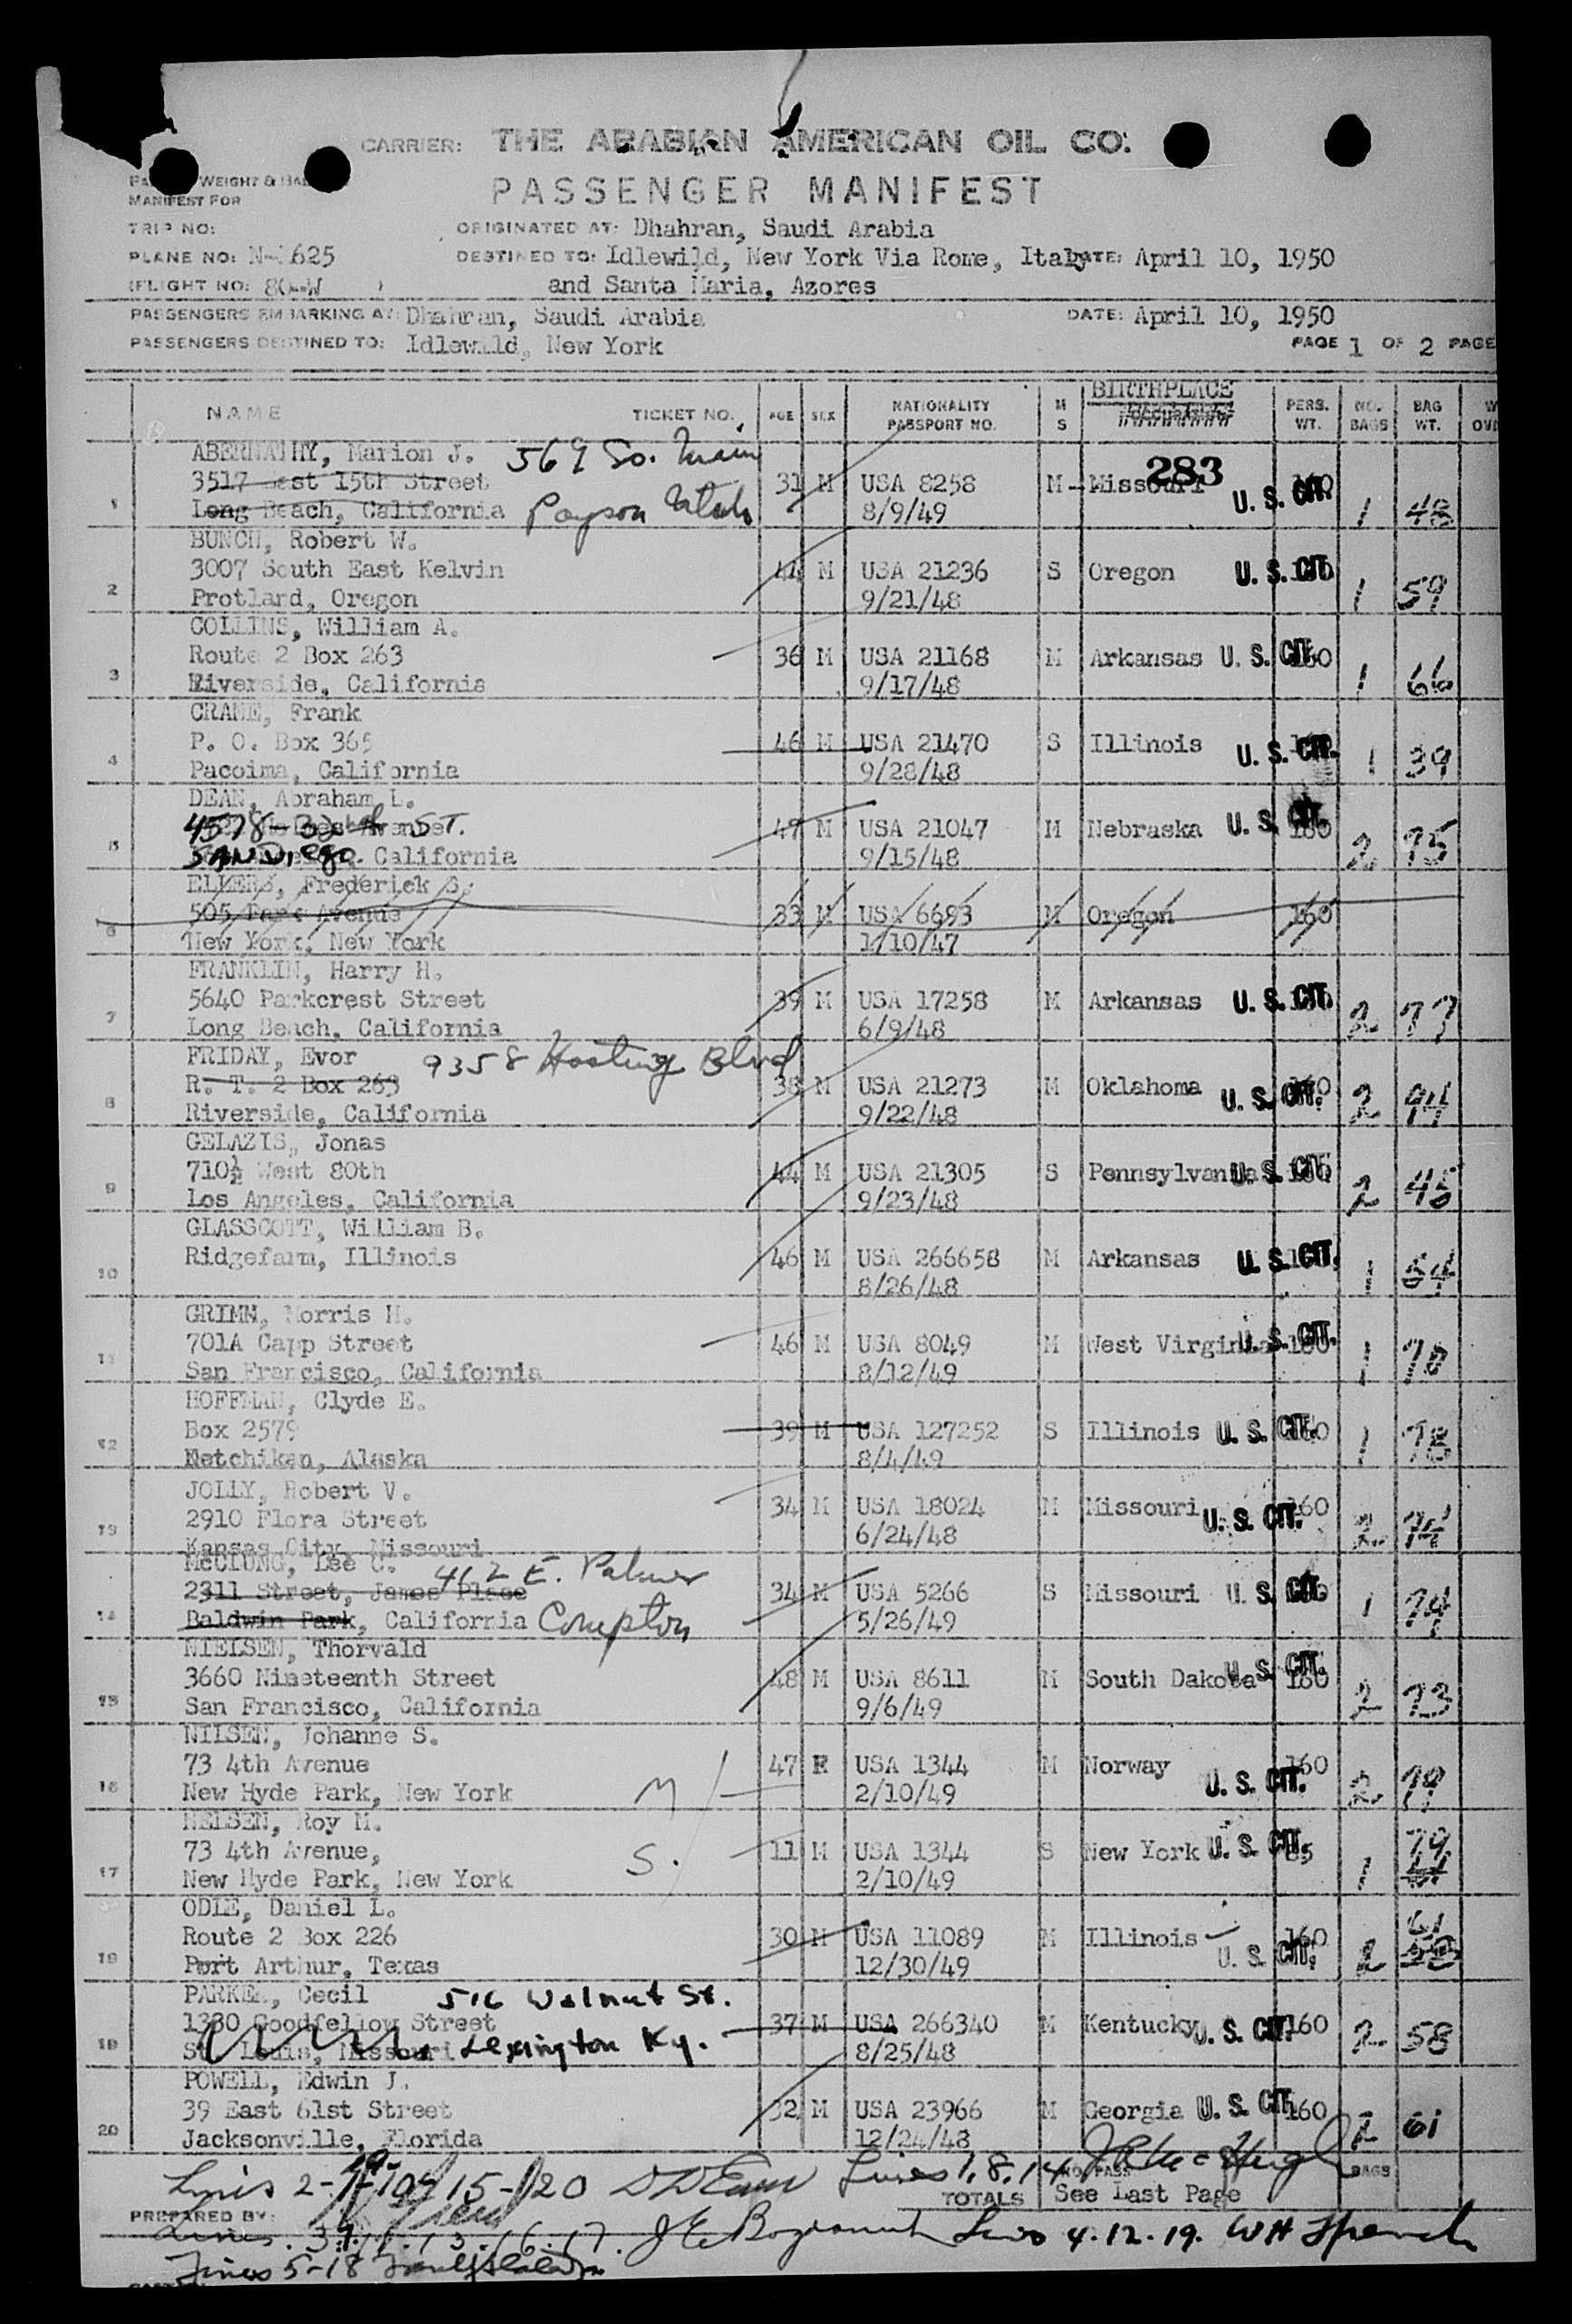 CARRIER: THE ARABIAN AMERICAN OIL CO:
WEIGHT &
MANIFEST FOR
PASSENGER MANIFEST
TRIP NO:
ORIGINATED AT: Dhahran, Saudi Arabia
PLANE NO: N-1625
DESTINED TO: Idlewild, New York Via Rome, Italy DATE: April 10, 1950
FLIGHT NO: 80-W
and Santa Maria, Azores
PASSENGERS EMBARKING AT: Dhahran, Saudi Arabia
DATE: April 10, 1950
PASSENGERS DESTINED TO: Idlewild, New York
PAGE 1 OF 2 PAGE
NAME TICKET NO. AGE SEX NATIONALITY PASSPORT NO. M S BIRTHPLACE PERS. WT. NO. BAGS BAG WT.
283
ABERNATHY, Marion J. 569 So. Main
1 3517 East 15th Street 31 M USA 8258 M Missouri 160 U. S. CIT. 1 48
Long Beach, California Payson Utah 8/9/49
BUNCH, Robert W.
2 3007 South East Kelvin 44 M USA 21236 S Oregon U. S. CIT. 1 59
Protland, Oregon 9/21/48
COLLINS, William A.
3 Route 2 Box 263 36 M USA 21168 M Arkansas U. S. CIT. 160 1 66
Riverside, California 9/17/48
CRANE, Frank
4 P. O. Box 365 46 M USA 21470 S Illinois U. S. CIT. 1 39
Pacoima, California 9/28/48
DEAN, Abraham L.
5 4578-32nd ST. 49 M USA 21047 M Nebraska U. S. CIT. 160 2 75
SAN DIEGO. California 9/15/48
ELLERS, Frederick S.
6 505 Park Avenue 33 M USA 6693 M Oregon 160
New York, New York 1/10/47
FRANKLIN, Harry H.
7 5640 Parkcrest Street 39 M USA 17258 M Arkansas U. S. CIT. 2 77
Long Beach, California 6/9/48
FRIDAY, Evor 9358 Blvd
8 R. T. 2 Box 263 38 M USA 21273 M Oklahoma U. S. CIT. 2 94
Riverside, California 9/22/48
GELAZIS, Jonas
9 710½ West 80th 44 M USA 21305 S Pennsylvania U. S. CIT. 2 45
Los Angeles, California 9/23/48
GLASSCOTT, William B.
10 Ridgefarm, Illinois 46 M USA 266658 M Arkansas U. S. CIT. 1 54
8/26/48
GRIMM, Morris H.
11 701A Capp Street 46 M USA 8049 M West Virginia U. S. CIT. 160 1 70
San Francisco, California 8/12/49
HOFFMAN, Clyde E.
12 Box 2579 39 M USA 127252 S Illinois U. S. CIT. 160 1 78
Ketchikan, Alaska 8/4/49
JOLLY, Robert V.
13 2910 Flora Street 34 M USA 18024 M Missouri U. S. CIT. 160 2 74
Kansas City, Missouri 6/24/48
McCLUNG, Lee C. 412 E. Palmer
14 2311 Street, James Place 34 M USA 5266 S Missouri U. S. CIT. 1 74
Baldwin Park, California Compton 5/26/49
NIELSEN, Thorvald
15 3660 Nineteenth Street 48 M USA 8611 M South Dakota U. S. CIT. 160 2 73
San Francisco, California 9/6/49
NILSEN, Johanne S.
16 73 4th Avenue 47 F USA 1344 M Norway 160 U. S. CIT. 2 79
New Hyde Park, New York M 2/10/49
NELSEN, Roy M.
17 73 4th Avenue, S. 11 M USA 1344 S New York U. S. CIT. 85 1 79
New Hyde Park, New York 2/10/49
ODLE, Daniel L.
18 Route 2 Box 226 30 M USA 11089 M Illinois 160 U. S. CIT. 2 61
Port Arthur, Texas 12/30/49
PARKER, Cecil 516 Walnut St.
19 1380 Goodfellow Street 37 M USA 266340 M Kentucky U. S. CIT. 160 2 58
St. Louis, Missouri Lexington Ky. 8/25/48
POWELL, Edwin J.
20 39 East 61st Street 32 M USA 23966 M Georgia U. S. CIT. 160 2 61
Jacksonville, Florida 12/24/48
Lines 1, 8, 14
NO. PASS BAGS
TOTALS See Last Page
PREPARED BY:
Lines 4. 12. 19.
Lines 5-18